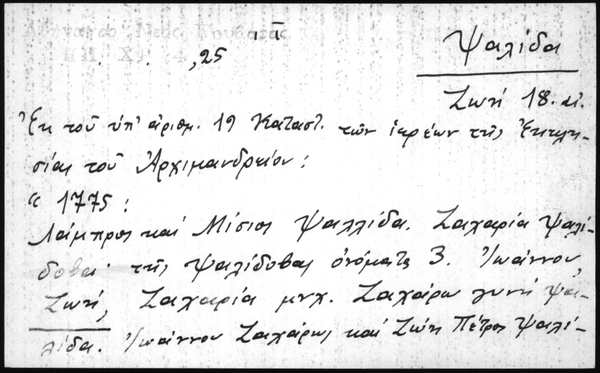 ,25
Ψαλίδα
Ζωή 18. αι.
Ἐκ τοῦ ὑπ' ἀριθμ. 19 Καταστ. τῶν ἱερέων τῆς Ἐκκλη-
σίας τοῦ Ἀρχιμανδρείου :
« 1775 :
Λάμπρος καὶ Μίσιος Ψαλλίδα. Ζαχαρία Ψαλί-
δοβα τῆς Ψαλίδοβας ὀνόματα 3. Ἰωάννου,
Ζωή, Ζαχαρία μνχ. Ζαχάρω γυνή Ψα-
λίδα. Ἰωάννου Ζαχάρως καὶ Ζώη Πέτρος Ψαλί-